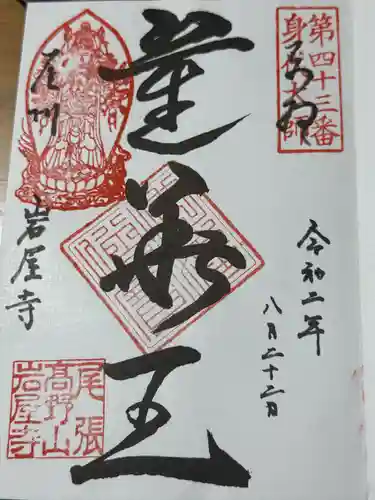 第四十三番
身代大師
奉拝
蓮華王
令和二年
八月二十二日
尾州
岩屋寺
尾張
高野山
岩屋寺